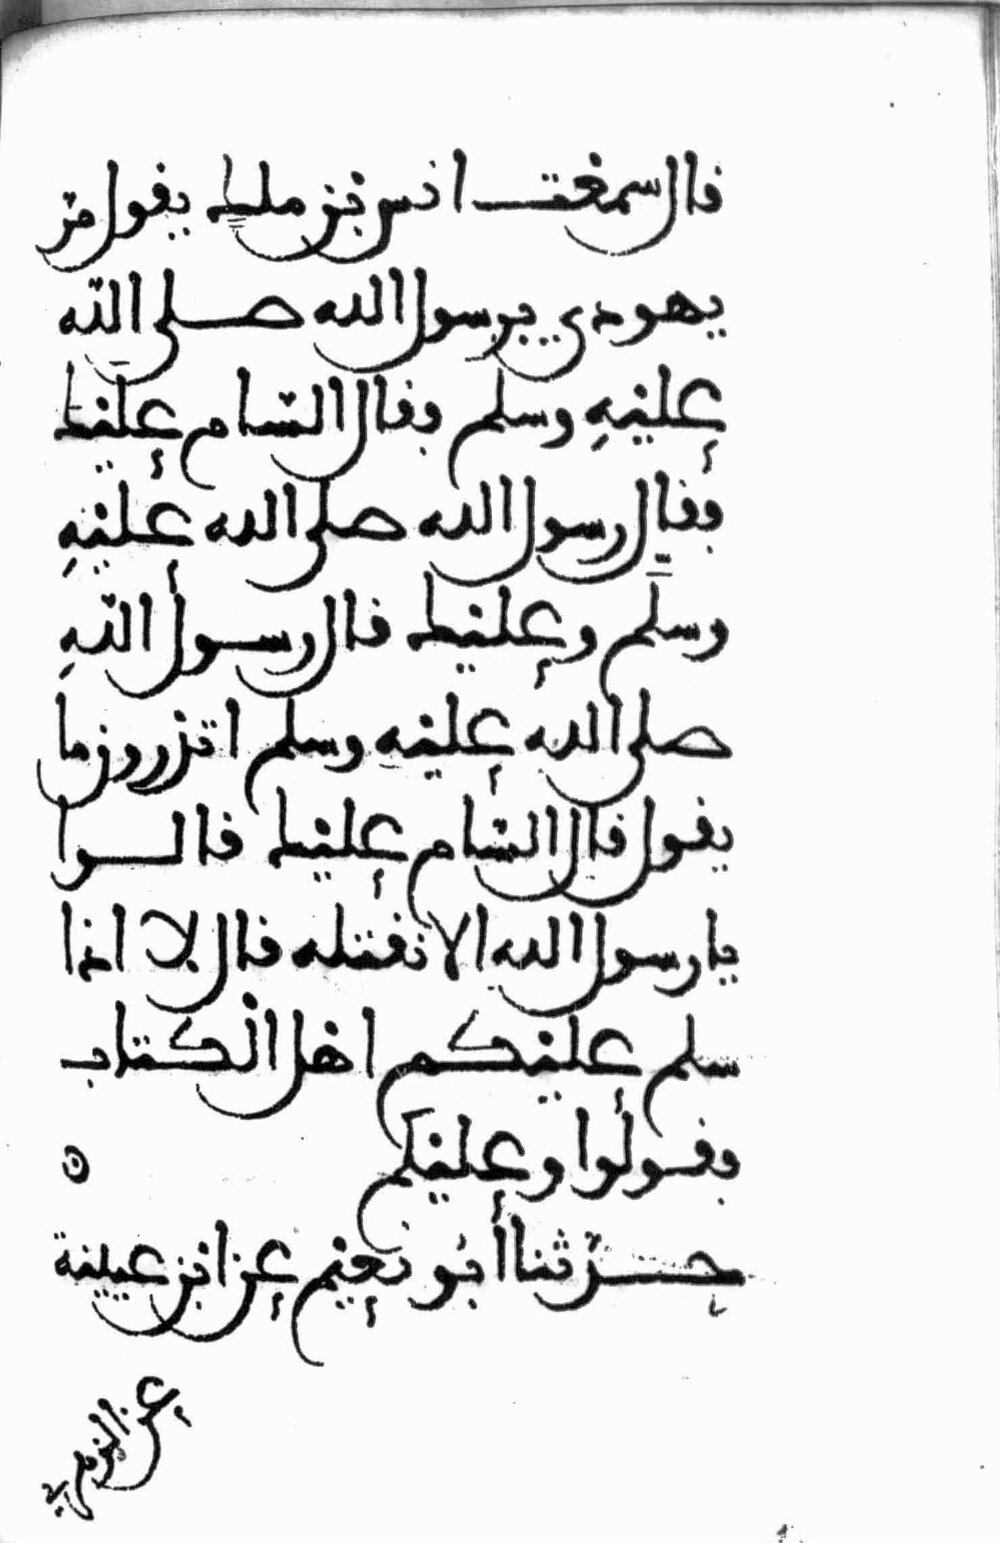 قال سمعت انس بن ملك يقول مر
يهودي برسول الله صلى الله
عليه وسلم فقال السام عليك
فقال رسول الله صلى الله عليه
وسلم وعليك قال رسول الله
صلى الله عليه وسلم اتدرون ما
يقول قال السام عليك قالوا
يا رسول الله الا نقتله قال لا اذا
سلم عليكم اهل الكتاب
فقولوا وعليكم
حدثنا أبو نعيم عن ابن عيينة
عن الزهري